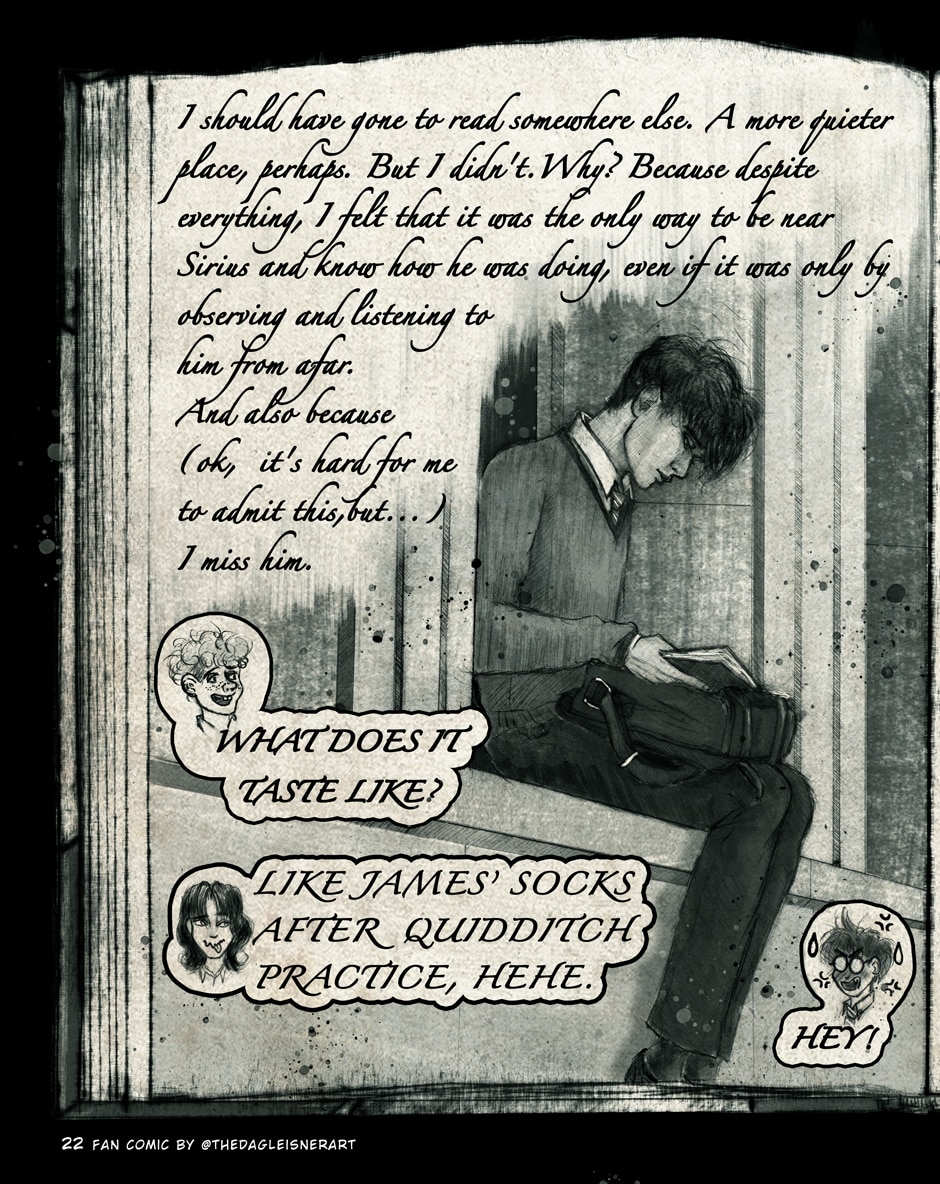 I should have gone to read somewhere else. A more quieter
place, perhaps. But I didn't. Why? Because despite
everything, I felt that it was the only way to be near
Sirius and know how he was doing, even if it was only by
observing and listening to
him from afar.
And also because
(ok, it's hard for me
to admit this, but... )
I miss him.
WHAT DOES IT
TASTE LIKE?
LIKE JAMES' SOCKS
AFTER QUIDDITCH
PRACTICE, HEHE.
HEY!
22 FAN COMIC BY @THEDAGLEISNERART